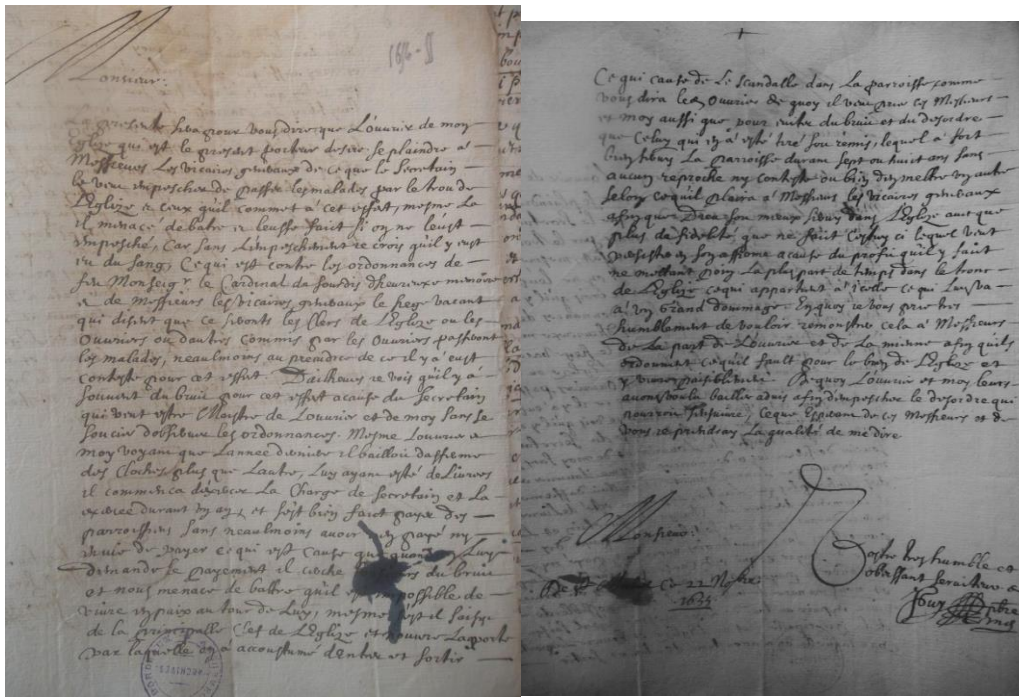 Monsieur
La presente sera pour vous dire que Louvrier de mon
Eglise qui est le present porteur desire se plaindre a
Messieurs Les vicaires generaux de ce que le Secretain
le veut empescher de passer les malades par le trou de
L'Eglize et ceux qu'il commet a cet effet, mesme La
il menacé de batre et leusse faict si on ne leust
empesché, Car sans Lempeschement je crois quil y eust
eu du sang, Ce qui est contre les ordonnances de
feu Monseigr le Cardinal de Sourdis dheureuse memoire
et de Messieurs les vicaires generaux le siege vacant
qui disent que ce seront les Clers de L'Eglize ou les
Ouvriers ou dautres commis par les Ouvriers passeront
les malades, neaulmoins au prejudice de ce il y a eust
conteste pour cet effect. Dailheurs je vois quil y a
souvent du bruit pour cet effect a cause du Secretain
qui veut estre Maistre de Louvrier et de moy sans se
soucier dobserver les ordonnances. Mesme Louvrier et
moy voyant que Lannee derniere il bailloit daferme
des Cloches plus que Lautre, Luy ayant esté delivrees
il commença dexercer La Charge de Secretain et La
exercé durant un an, et sest bien faict payer des
parroissiens sans neaulmoins avoir rien payé ny
envie de payer ce qui est cause que quand on Luy
demande le payement il du bruit
et nous menace de battre quil est impossible de
vivre en paix au tour de Luy, mesme est il saisy
de la principalle Clef de L'Eglize et louvre La porte
par laquelle on a accoustumé dentrer et sortir
Ce qui cause de Le scandalle dans La parroisse comme
vous dira led Ouvrier de quoy il veut prier ces Messieurs
et moy aussi que pour eviter du bruit et du desordre
que Celuy qui en a esté tiré soit remis, lequel a fort
bien servy La parroisse durant sept ou huict ans sans
aucun reproche ny conteste ou bien dy mettre un autre
selon ce quil plaira a Messieurs les vicaires generaux
afin que Dieu soit mieux servy dans L'Eglize avec que
plus de fidelité, que ne faict Cestuy ci lequel veut
persister en son afferme a cause du profit quil y faict
ne mettant point La plus part du temps dans le tronc
de L'Eglize ce qui appartient a icelle ce qui Luy va
a un Grand dommage. En quoy je vous prie tres
humblement de vouloir remonstrer cela a Messieurs
de La part de Louvrier et de La mienne afin quils
ordonnent ce quil fault pour le bien de L'Eglize et
y vivre paisiblement. De quoy Louvrier et moy leurs
avons voulu bailler advis afin dempescher le desordre qui
pourroit sensuivre, Ce que Esperant de ces Messieurs et de
vous je prendray La qualité de me dire
Monsieur
Vostre tres humble et
obeissant serviteur
De ce 22 Nobre
1645